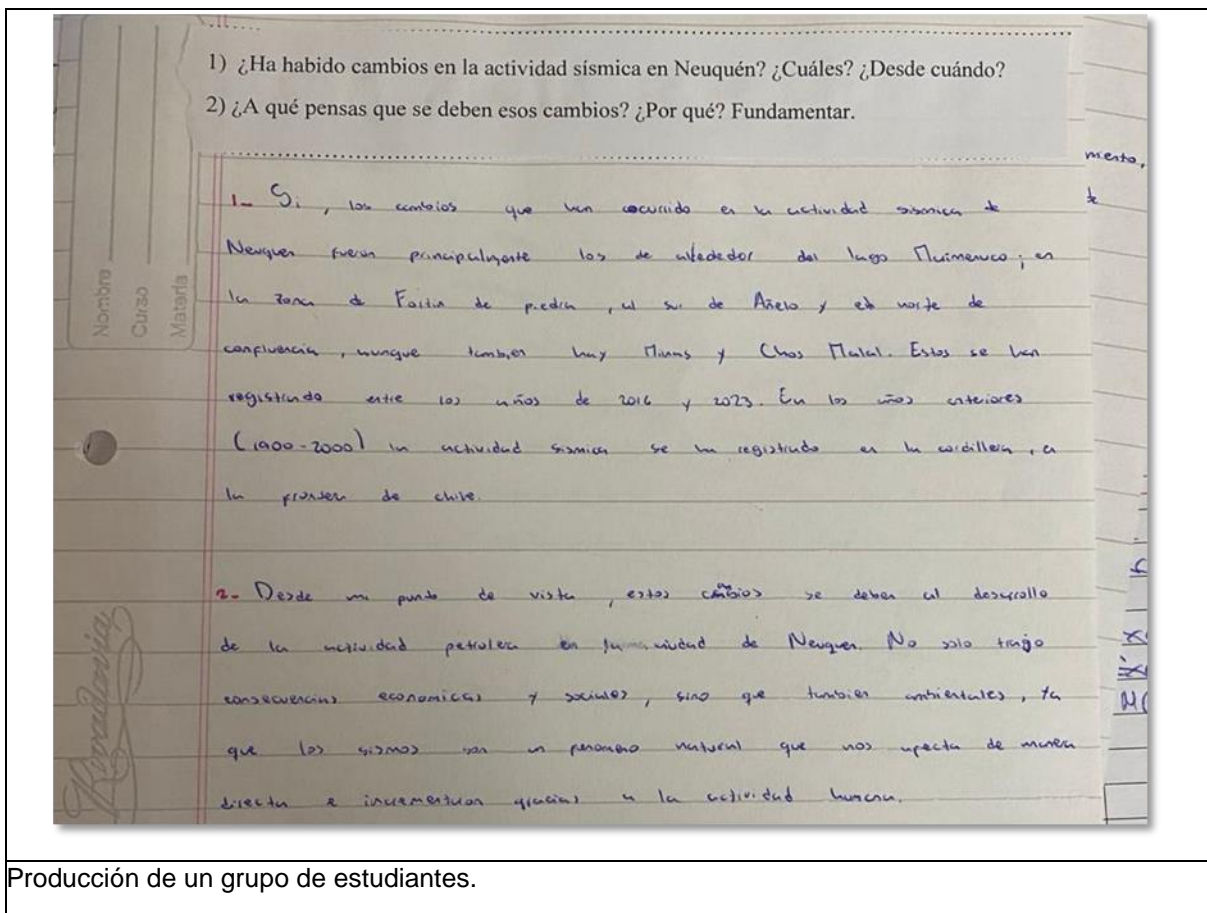 1) ¿Ha habido cambios en la actividad sísmica en Neuquén? ¿Cuáles? ¿Desde cuándo?
2) ¿A qué pensas que se deben esos cambios? ¿Por qué? Fundamentar.
mento,
1- Si, los cambios que han ocurrido en la actividad sismica de
Neuquen fueron principalmente los de alrededor del lago Marimenuco; en
la zona de Fortin de piedra, al sur de Añelo y el norte de
confluencia, aunque tambien hay Minas y Chos Malal. Estos se han
registrado entre los años de 2016 y 2023. En los años anteriores
(1900-2000) la actividad sismica se ha registrado en la cordillera, en
la frontera de chile.
2- Desde mi punto de vista, estos cambios se deben al desarrollo
de la actividad petrolera en la ciudad de Neuquen. No solo trajo
consecuencias economicas y sociales, sino que tambien ambientales, ya
que los sismos son un fenomeno natural que nos afecta de manera
directa e incrementan gracias a la actividad humana.
Nombre
Curso
Materia
Rivadavia
Producción de un grupo de estudiantes.